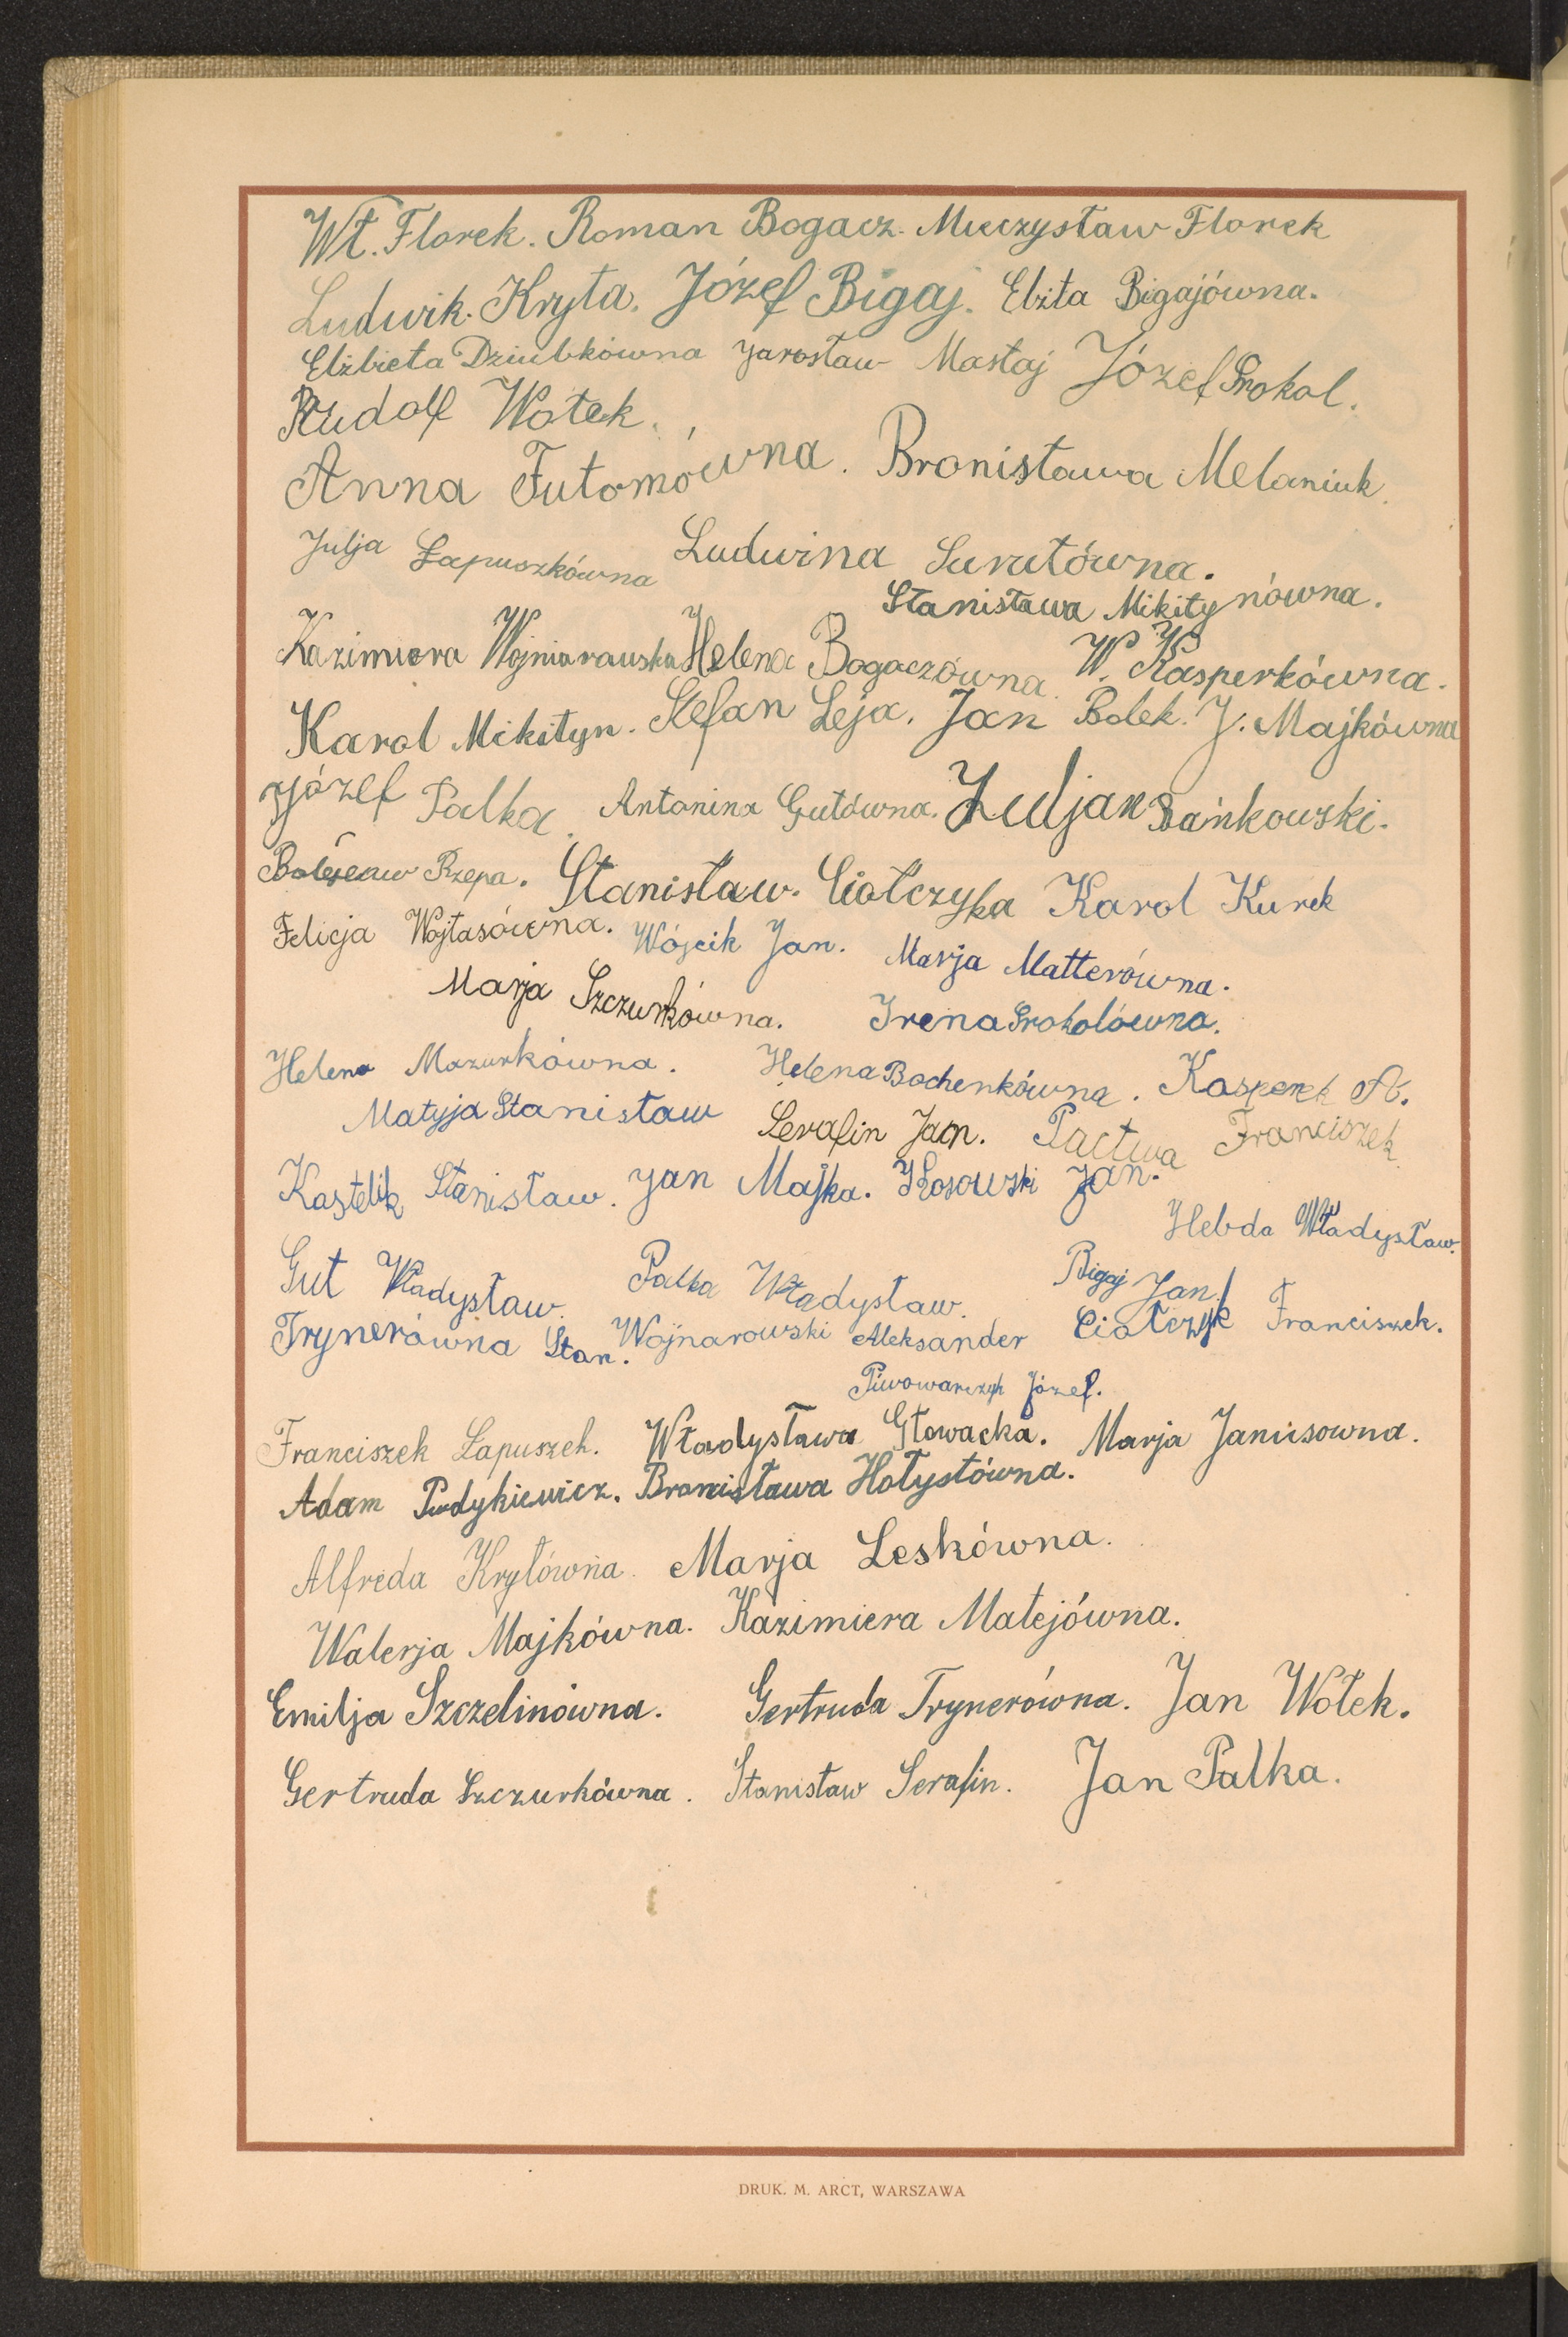 Wł. Florek. Roman Bogacz. Mieczysław Florek
Ludwik. Kryta. Józef Bigaj. Elżta Bigajówna.
Elżbieta Dziubkówna Jarosław Mastaj Józef Prokol.
Rudolf Wołek.
Anna Futomówna. Bronisława Melaniuk.
Julja Łapuszkówna Ludwina Surutówna.
Stanisława Mikitynówna.
Kazimiera Helena Bogaczówna. W. Kasperkówna.
Karol Mikityn. Stefan Leja. Jan Bolek. J. Majkówna
Józef Palka. Antonina Gutówna. Juljan Bańkowski.
Rzepa. Stanisław. Ciołczyka Karol Kurek
Felicja Wojtasówna. Wójcik Jan. Marja Matterówna.
Marja Szczurkówna. Irena Prokolówna.
Helena Mazurkówna. Helena Bochenkówna. Kasperek A.
Matyja Stanisław Serafin Jan. Pactwa Franciszek
Kastelik Stanisław. Jan Majka. Kosowski Jan.
Hebda Władysław.
Gut Władysław. Palka Władysław. Bigaj Jan.
Trynerówna Stan. Wojnarowski Aleksander Ciołczyk Franciszek.
Piwowarczyk Józef.
Franciszek Łapuszek. Władysława Głowacka. Marja Janusówna.
Adam Pudykiewicz. Bronisława Hołystówna.
Alfreda Krytówna. Marja Leskówna.
Walerja Majkówna. Kazimiera Matejówna.
Emilja Szczelinówna. Gertruda Trynerówna. Jan Wołek.
Gertruda Szczurkówna. Stanisław Serafin. Jan Palka.
DRUK. M. ARCT, WARSZAWA